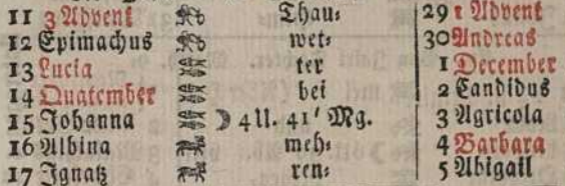 11 3 Advent Thau⸗ 29 1 Advent
12 Epimachus wet⸗ 30 Andreas
13 Lucia ter 1 December
14 Quatember bei 2 Candidus
15 Johanna ☽ 4 U. 41' Mg. 3 Agricola
16 Albina meh⸗ 4 Barbara
17 Ignatz ren⸗ 5 Abigail